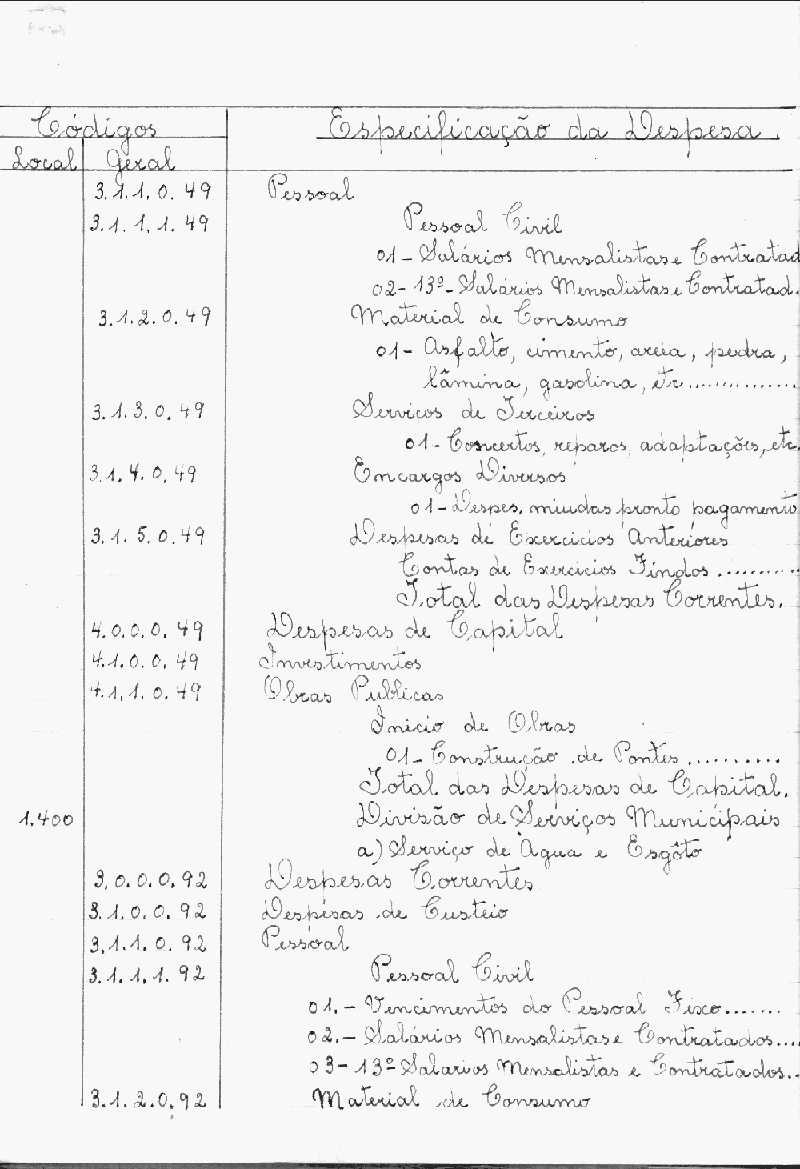 Códigos Especificação da Despesa.
Local Geral
3.1.1.0.49 Pessoal
3.1.1.1.49 Pessoal Civil
01- Salários Mensalistas e Contratad
02- 13º- Salários Mensalistas e Contratad.
3.1.2.0.49 Material de Consumo
01- Asfalto, cimento, areia, pedra,
lâmina, gasolina, etc..............
3.1.3.0.49 Servicos de Terceiros
01- Concertos, reparos, adaptações, etc.
3.1.4.0.49 Encargos Diversos
01- Despes. miudas pronto pagamento
3.1.5.0.49 Despesas de Exercicios Anteriores
Contas de Exercicios Findos..........
Total das Despesas Correntes.
4.0.0.0.49 Despesas de Capital
4.1.0.0.49 Investimentos
4.1.1.0.49 Obras Publicas
Inicio de Obras
01- Construção de Pontes..........
Total das Despesas de Capital.
1.400 Divisão de Serviços Municipais
a) Serviço de Água e Esgôto
3.0.0.0.92 Despesas Correntes
3.1.0.0.92 Despesas de Custeio
3.1.1.0.92 Pessoal
3.1.1.1.92 Pessoal Civil
01.- Vencimentos do Pessoal Fixo.......
02.- Salários Mensalistas e Contratados....
03- 13º Salarios Mensalistas e Contratados..
3.1.2.0.92 Material de Consumo